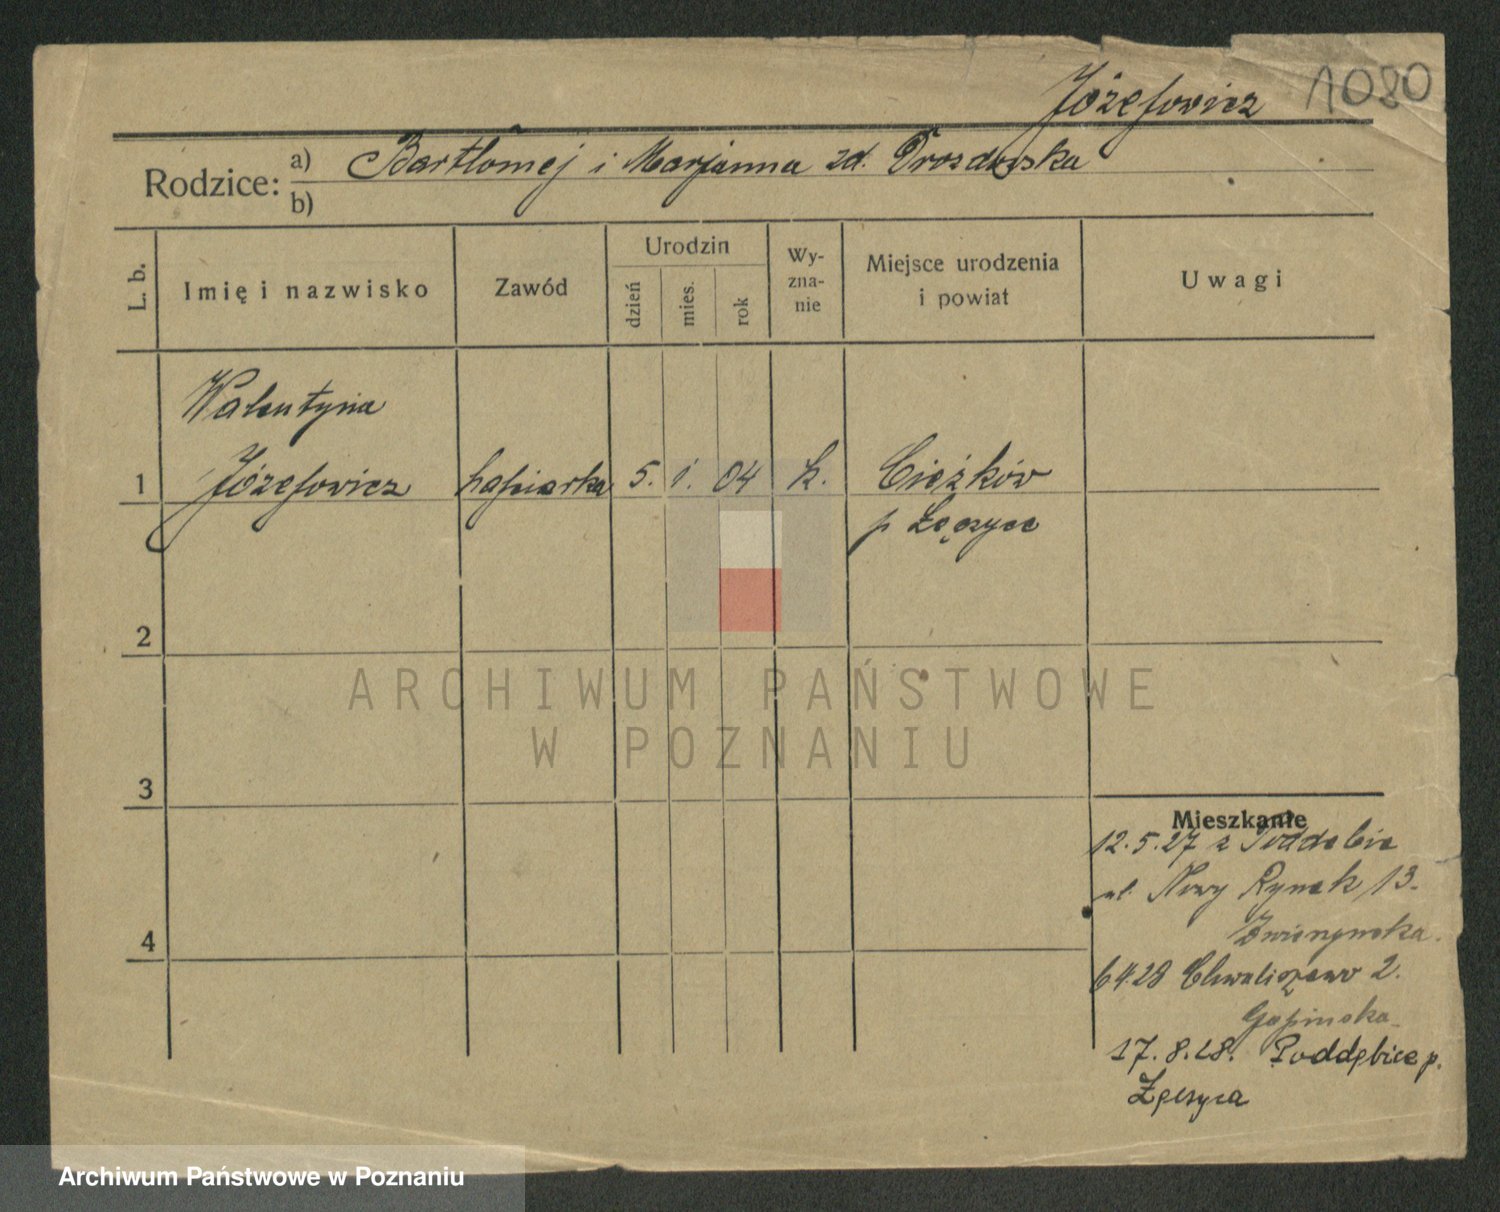 Józefowicz 1080
Rodzice: a) Bartłomej i Marjanna zd. Drozdowska
b)
L. b. Imię i nazwisko Zawód Urodzin dzień mies. rok Wy-zna-nie Miejsce urodzenia i powiat Uwagi
Walentyna
1 Józefowicz hafciarka 5. 1. 04 k. Ciężków
p Łęczyce
2
ARCHIWUM PAŃSTWOWE
W POZNANIU
3
Mieszkanie
12.5.27 z Poddebic
ul. Nowy Rynek 13.
4
6428 Chwaliszewo 2.
17.8.28. Poddębice p.
Łęczyca
Archiwum Państwowe w Poznaniu